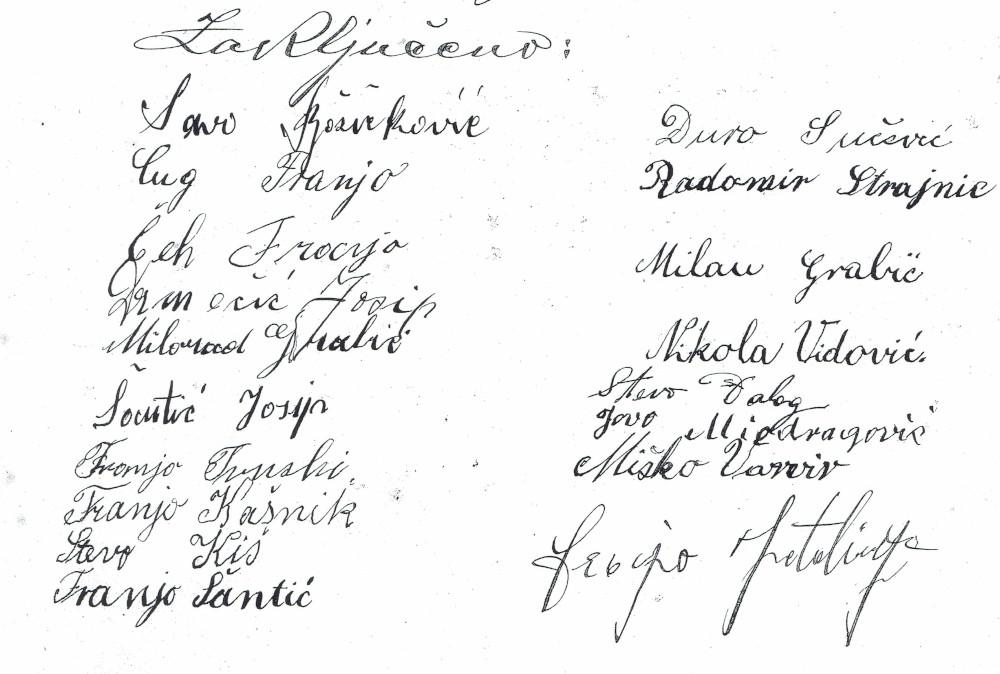 Zaključeno:
Savo Božičković
Cug Franjo
Čeh Franjo
Drmečić Josip
Milorad Grabić
Šantić Josip
Franjo
Franjo Kašnik
Stevo Kiš
Franjo Šantić
Duro Sučević
Radomir Strajnic
Milan Grabić
Nikola Vidović.
Stevo Dalog
Jovo Miodragović
Miško